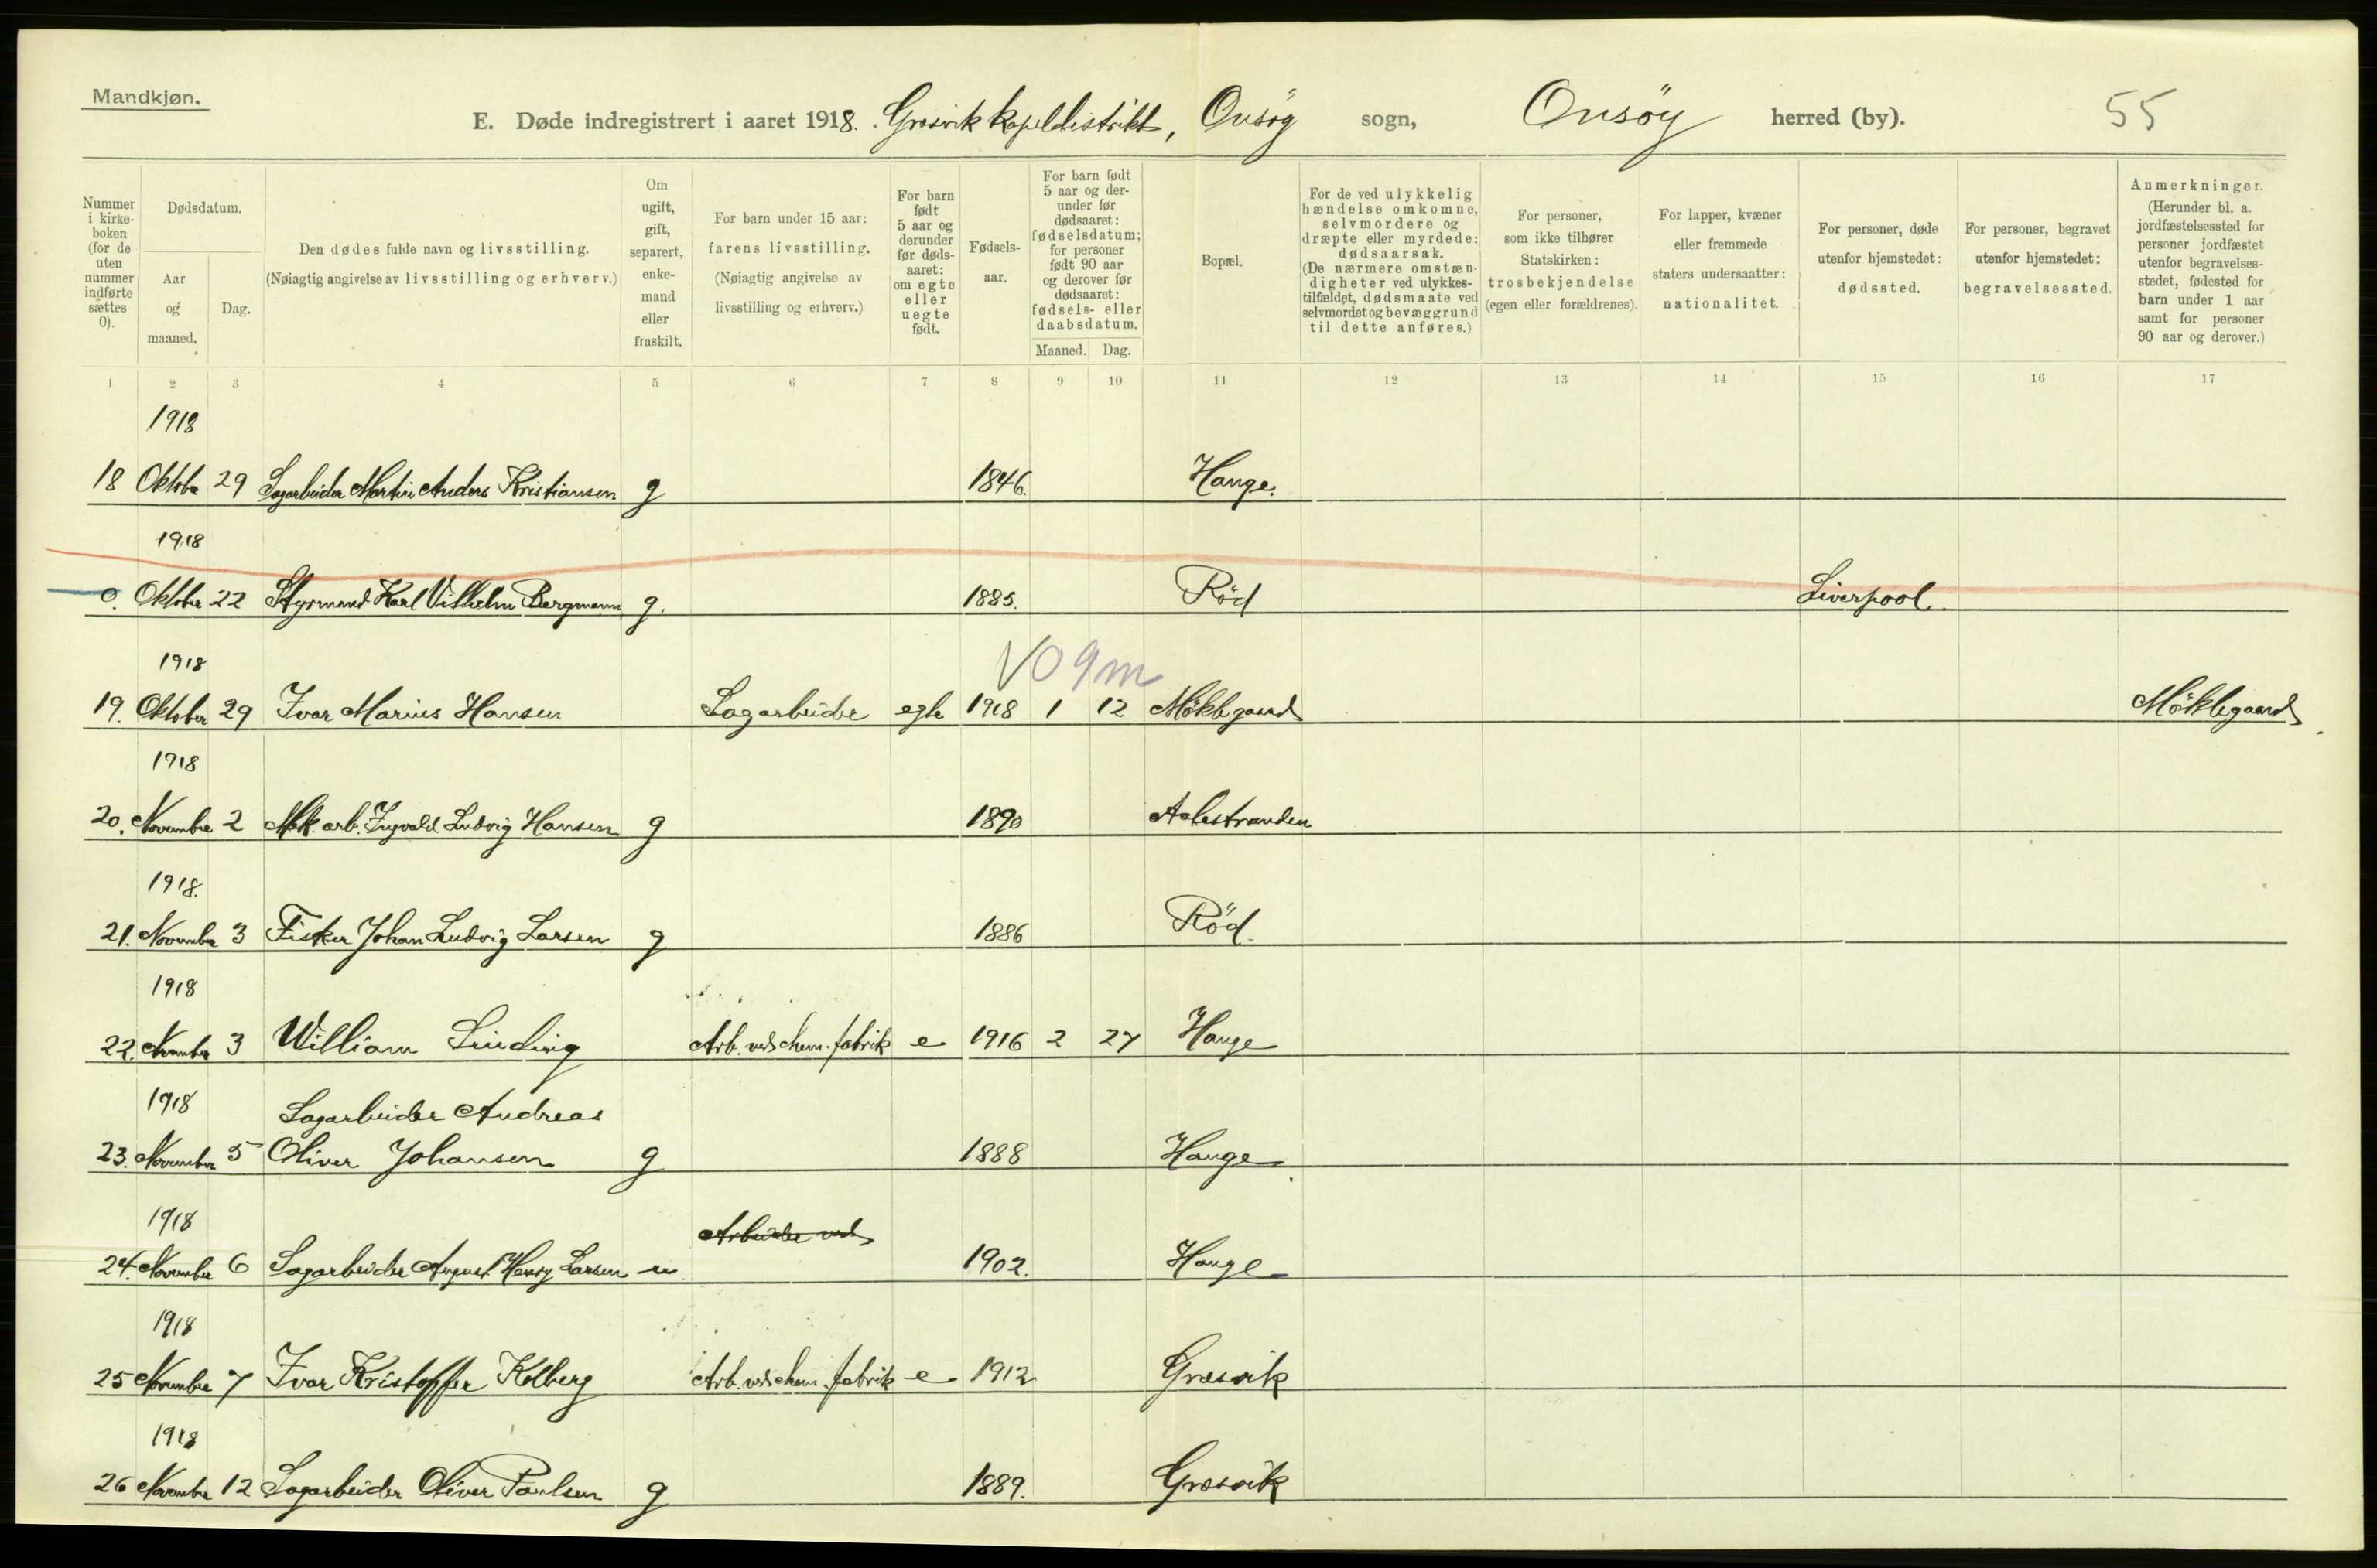 Mandkjøn.
E. Døde indregistrert i aaret 1918. Græsvik kapeldistrikt, Onsöy sogn, Onsöy herred (by). 55
Nummer i kirke-boken (for de uten nummer indførte sættes 0).
Dødsdatum.
Aar og maaned.
Dag.
Den dødes fulde navn og livsstilling.
(Nøiagtig angivelse av livsstilling og erhverv.)
Om ugift, gift, separert, enke-mand eller fraskilt.
For barn under 15 aar: farens livsstilling.
(Nøiagtig angivelse av livsstilling og erhverv.)
For barn født 5 aar og derunder før døds-aaret: om egte eller uegte født.
Fødsels-aar.
For barn født 5 aar og der-under før dødsaaret: fødselsdatum; for personer født 90 aar og derover før dødsaaret: fødsels- eller daabsdatum.
Maaned. Dag.
Bopæl.
For de ved ulykkelig hændelse omkomne, selvmordere og dræpte eller myrdede: dødsaarsak.
(De nærmere omstæn-digheter ved ulykkes-tilfældet, dødsmaate ved selvmordet og bevæggrund til dette anføres.)
For personer, som ikke tilhører Statskirken: trosbekjendelse (egen eller forældrenes).
For lapper, kvæner eller fremmede staters undersaatter: nationalitet.
For personer, døde utenfor hjemstedet: dødssted.
For personer, begravet utenfor hjemstedet: begravelsessted.
Anmerkninger.
(Herunder bl. a. jordfæstelsessted for personer jordfæstet utenfor begravelses-stedet, fødested for barn under 1 aar samt for personer 90 aar og derover.)
1 2 3 4 5 6 7 8 9 10 11 12 13 14 15 16 17
1918
18 Oktober 29 Sagarbeider Martin Anders Kristiansen g 1846. Hauge.
1918
0. Oktober 22 Styrmand Karl Vilhelm Bergmann g. 1885. Röd Liverpool.
1918 V 0 9 m
19. Oktober 29 Ivar Marius Hansen Sagarbeider egte 1918 1 12 Möklegaard Möklegaard
1918
20. November 2 Mek. arb. Ingvald Ludvig Hansen g 1890 Aalestranden
1918.
21. November 3 Fisker Johan Ludvig Larsen g 1886 Röd.
1918
22. November 3 William Linding Arb. ved chem. fabrik e 1916 2 27 Hauge
1918 Sagarbeider Andreas
23. November 5 Oliver Johansen g 1888 Hauge
1918 Arbeider ved
24. November 6 Sagarbeider August Henry Larsen u 1902. Hauge
1918
25 November 7 Ivar Kristoffer Kolberg Arb. ved chem. fabrik e 1912 Græsvik
1918
26 November 12 Sagarbeider Oliver Paulsen g 1889. Græsvik